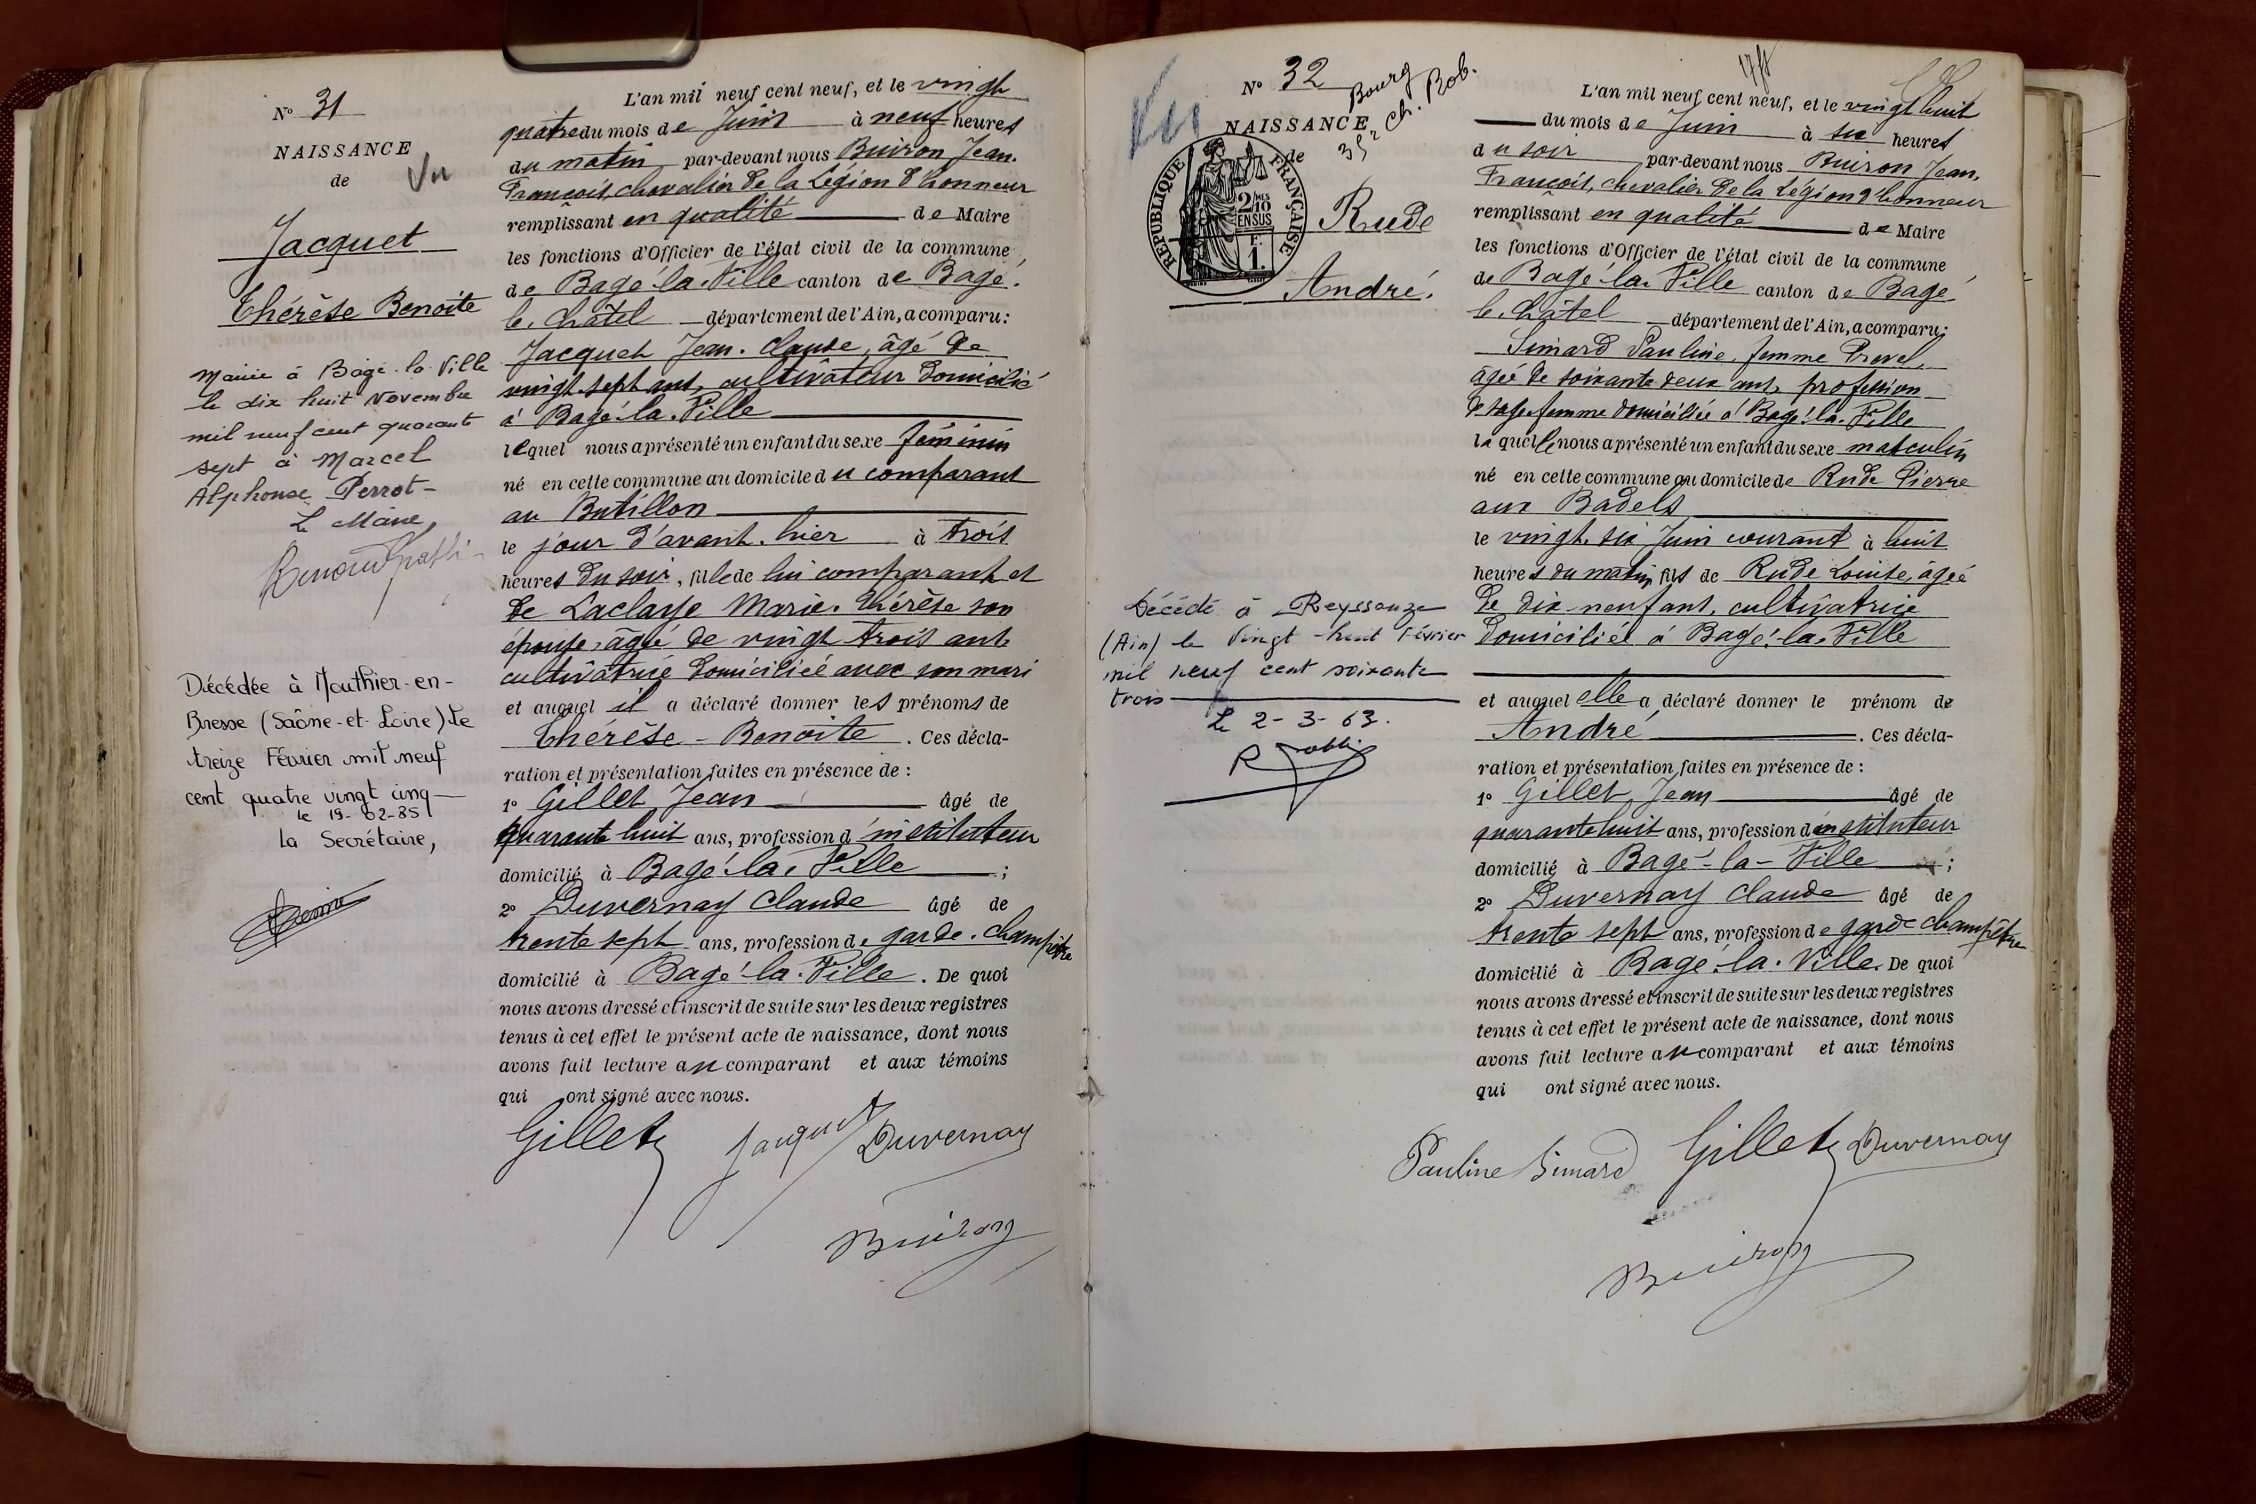 N° 31
NAISSANCE
de
Vu
Jacquet
Thérèse Benoite
Mariée à Bâgé-la-Ville
le dix huit Novembre
mil neuf cent quarante
sept à Marcel
Alphonse Perrot -
Le Maire,
Décédée à Mouthier-en-
Bresse (Saône-et-Loire) le
treize Février mil neuf
cent quatre vingt cinq
le 19-02-85
la Secrétaire,
L'an mil neuf cent neuf, et le vingt
quatre du mois de Juin à neuf heures
du matin par-devant nous Buiron Jean-
François, chevalier de la Légion d'honneur
remplissant en qualité de Maire
les fonctions d'Officier de l'état civil de la commune
de Bagé-la-Ville canton de Bagé-
le-Châtel département de l'Ain, a comparu:
Jacquet Jean-Claude, âgé de
vingt-sept ans, cultivateur domicilié
à Bagé-la-Ville
lequel nous a présenté un enfant du sexe féminin
né en cette commune au domicile du comparant
au Butillon
le jour d'avant-hier à trois
heures du soir, fille de lui comparant et
de Laclaye Marie-Thérèse son
épouse, âgée de vingt trois ans
cultivatrice domiciliée avec son mari
et auquel il a déclaré donner les prénoms de
Thérèse-Benoite. Ces décla-
ration et présentation faites en présence de :
1° Gillet Jean âgé de
quarante huit ans, profession d'instituteur
domicilié à Bagé-la-Ville ;
2° Duvernay Claude âgé de
trente sept ans, profession de garde-champêtre
domicilié à Bagé-la-Ville. De quoi
nous avons dressé et inscrit de suite sur les deux registres
tenus à cet effet le présent acte de naissance, dont nous
avons fait lecture au comparant et aux témoins
qui ont signé avec nous.
Gillet Jacquet Duvernay
Buiron
N° 32
Bourg
NAISSANCE
de
RÉPUBLIQUE FRANÇAISE
2/10
EN SUS
F.
1.
Rude
André.
Décédé à Reyssouze
(Ain) le vingt-huit Février
mil neuf cent soixante
trois
Le 2-3-63.
L'an mil neuf cent neuf, et le vingt huit
du mois de Juin à six heures
du soir par-devant nous Buiron Jean-
François, chevalier de la Légion d'honneur
remplissant en qualité de Maire
les fonctions d'Officier de l'état civil de la commune
de Bagé-la-Ville canton de Bagé
le-Châtel département de l'Ain, a comparu:
Simard Pauline, femme Prevel,
âgée de soixante deux ans, profession
de sage-femme domiciliée à Bagé-la-Ville
laquelle nous a présenté un enfant du sexe masculin
né en cette commune au domicile de Rude Pierre
aux Badels
le vingt-six Juin courant à huit
heures du matin, fils de Rude Louise, âgée
de dix-neuf ans, cultivatrice
domiciliée à Bagé-la-Ville
et auquel elle a déclaré donner le prénom de
André. Ces décla-
ration et présentation faites en présence de :
1° Gillet Jean âgé de
quarante huit ans, profession d'instituteur
domicilié à Bagé-la-Ville ;
2° Duvernay Claude âgé de
trente sept ans, profession de garde champêtre
domicilié à Bagé-la-Ville. De quoi
nous avons dressé et inscrit de suite sur les deux registres
tenus à cet effet le présent acte de naissance, dont nous
avons fait lecture au comparant et aux témoins
qui ont signé avec nous.
Pauline Simard Gillet Duvernay
Buiron